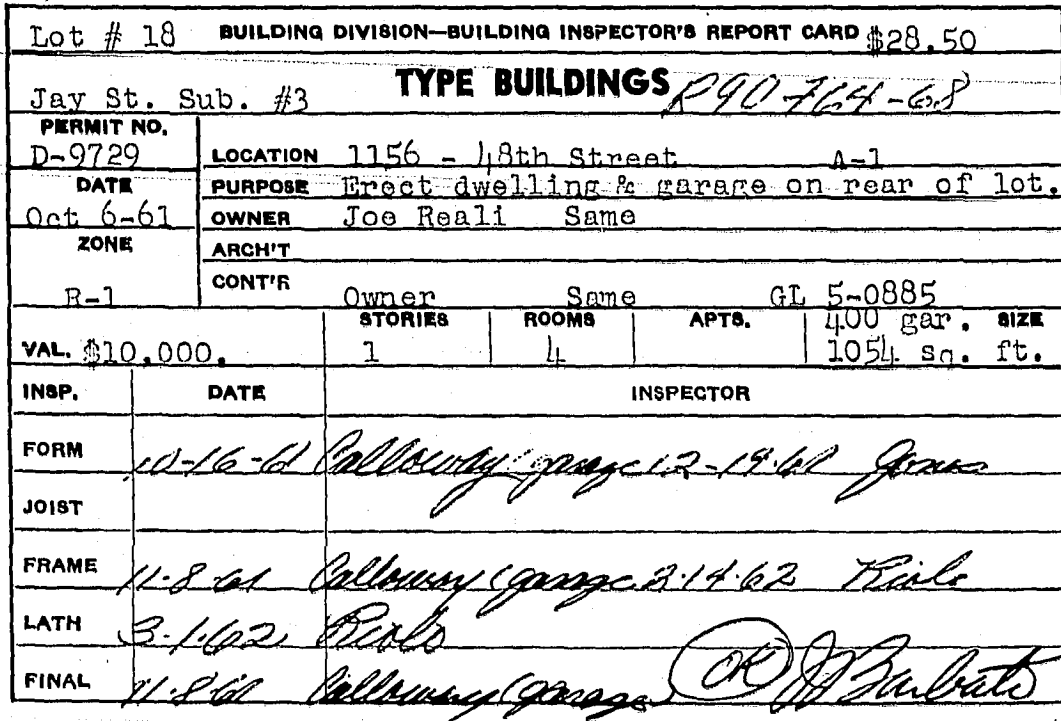 Lot # 18 BUILDING DIVISION—BUILDING INSPECTOR'S REPORT CARD $28.50
TYPE BUILDINGS R90-764-68
Jay St. Sub. #3
PERMIT NO.
D-9729 LOCATION 1156 - 48th Street A-1
DATE PURPOSE Erect dwelling & garage on rear of lot.
Oct 6-61 OWNER Joe Reali Same
ZONE ARCH'T
R-1 CONT'R Owner Same GL 5-0885
STORIES ROOMS APTS. 400 gar. SIZE
VAL. $10,000. 1 4 1054 sq. ft.
INSP. DATE INSPECTOR
FORM 10-16-61 Calloway (garage 12-19-61 Jones
JOIST
FRAME 11-8-61 Calloway (garage 2-14-62 Riolo
LATH 3-1-62 Riolo
FINAL 11-8-61 Calloway (garage) OK J Barbato